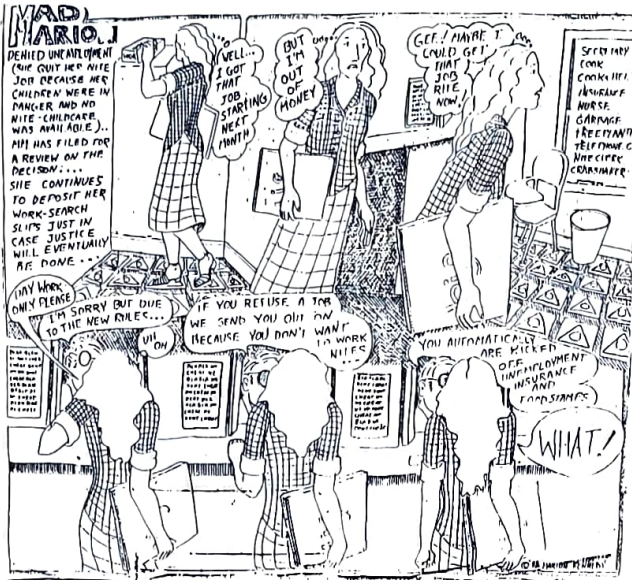 MAD
MARION
DENIED UNEMPLOYMENT
(SHE QUIT HER NITE
JOB BECAUSE HER
CHILDREN WERE IN
DANGER AND NO
NITE-CHILDCARE
WAS AVAILABLE)..
MM HAS FILED FOR
A REVIEW ON THE
DECISON....
SHE CONTINUES
TO DEPOSIT HER
WORK-SEARCH
SLIPS JUST IN
CASE JUSTICE
WILL EVENTUALLY
BE DONE...
WELL...
I GOT
THAT
JOB
STARTING
NEXT
MONTH
BUT
I'M
OUT
OF
MONEY
GEE! MAYBE I
COULD GET
THAT
JOB
RITE
NOW!
SECRETARY
COOK
COOKS HEL
INSURANCE
NURSE
GARBAGE
TELEPHONE C
NITE CLERK
DAY WORK
ONLY PLEASE
I'M SORRY BUT DUE
TO THE NEW RULES...
UH
OH
IF YOU REFUSE A JOB
WE SEND YOU OUT ON
BECAUSE YOU DON'T WANT
TO WORK
NITES
YOU AUTOMATICALLY
ARE KICKED
OFF
UNEMPLOYMENT
INSURANCE
AND
FOODSTAMPS
WHAT!